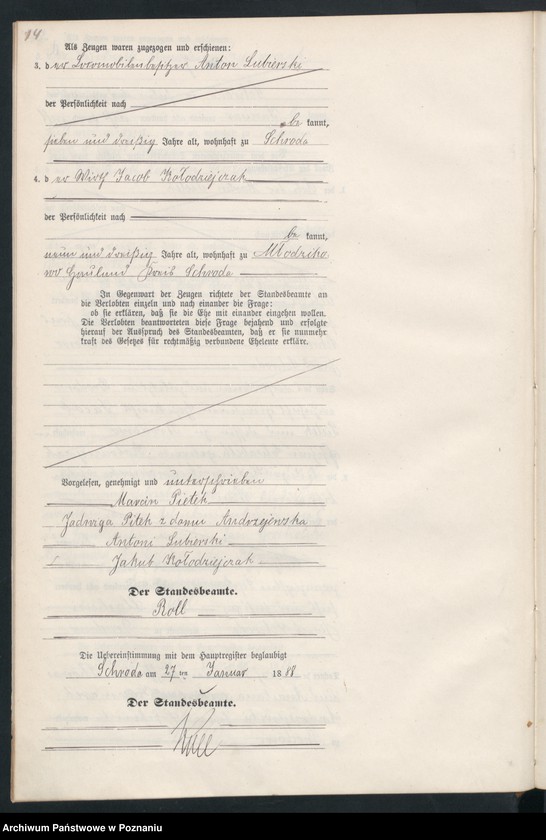 14
Als Zeugen waren zugezogen und erschienen:
3. der Locomobilenbesitzer Anton Lubierski
der Persönlichkeit nach
be kannt,
sieben und dreißig Jahre alt, wohnhaft zu Schroda
4. der Wirth Jacob Kołodziejczak
der Persönlichkeit nach
be kannt,
neun und dreißig Jahre alt, wohnhaft zu Młodziko
wo Hauland Kreis Schroda
In Gegenwart der Zeugen richtete der Standesbeamte an
die Verlobten einzeln und nach einander die Frage:
ob sie erklären, daß sie die Ehe mit einander eingehen wollen.
Die Verlobten beantworteten diese Frage bejahend und erfolgte
hierauf der Ausspruch des Standesbeamten, daß er sie nunmehr
kraft des Gesetzes für rechtmäßig verbundene Eheleute erkläre.
Vorgelesen, genehmigt und unterschrieben
Marcin Pietek
Jadwiga Pitek z domu Andrzejewska
Antoni Lubierski
Jakub Kołodziejczak
Der Standesbeamte.
Roll
Die Uebereinstimmung mit dem Hauptregister beglaubigt
Schroda am 27 ten Januar 1888
Der Standesbeamte.
Roll
Archiwum Państwowe w Poznaniu